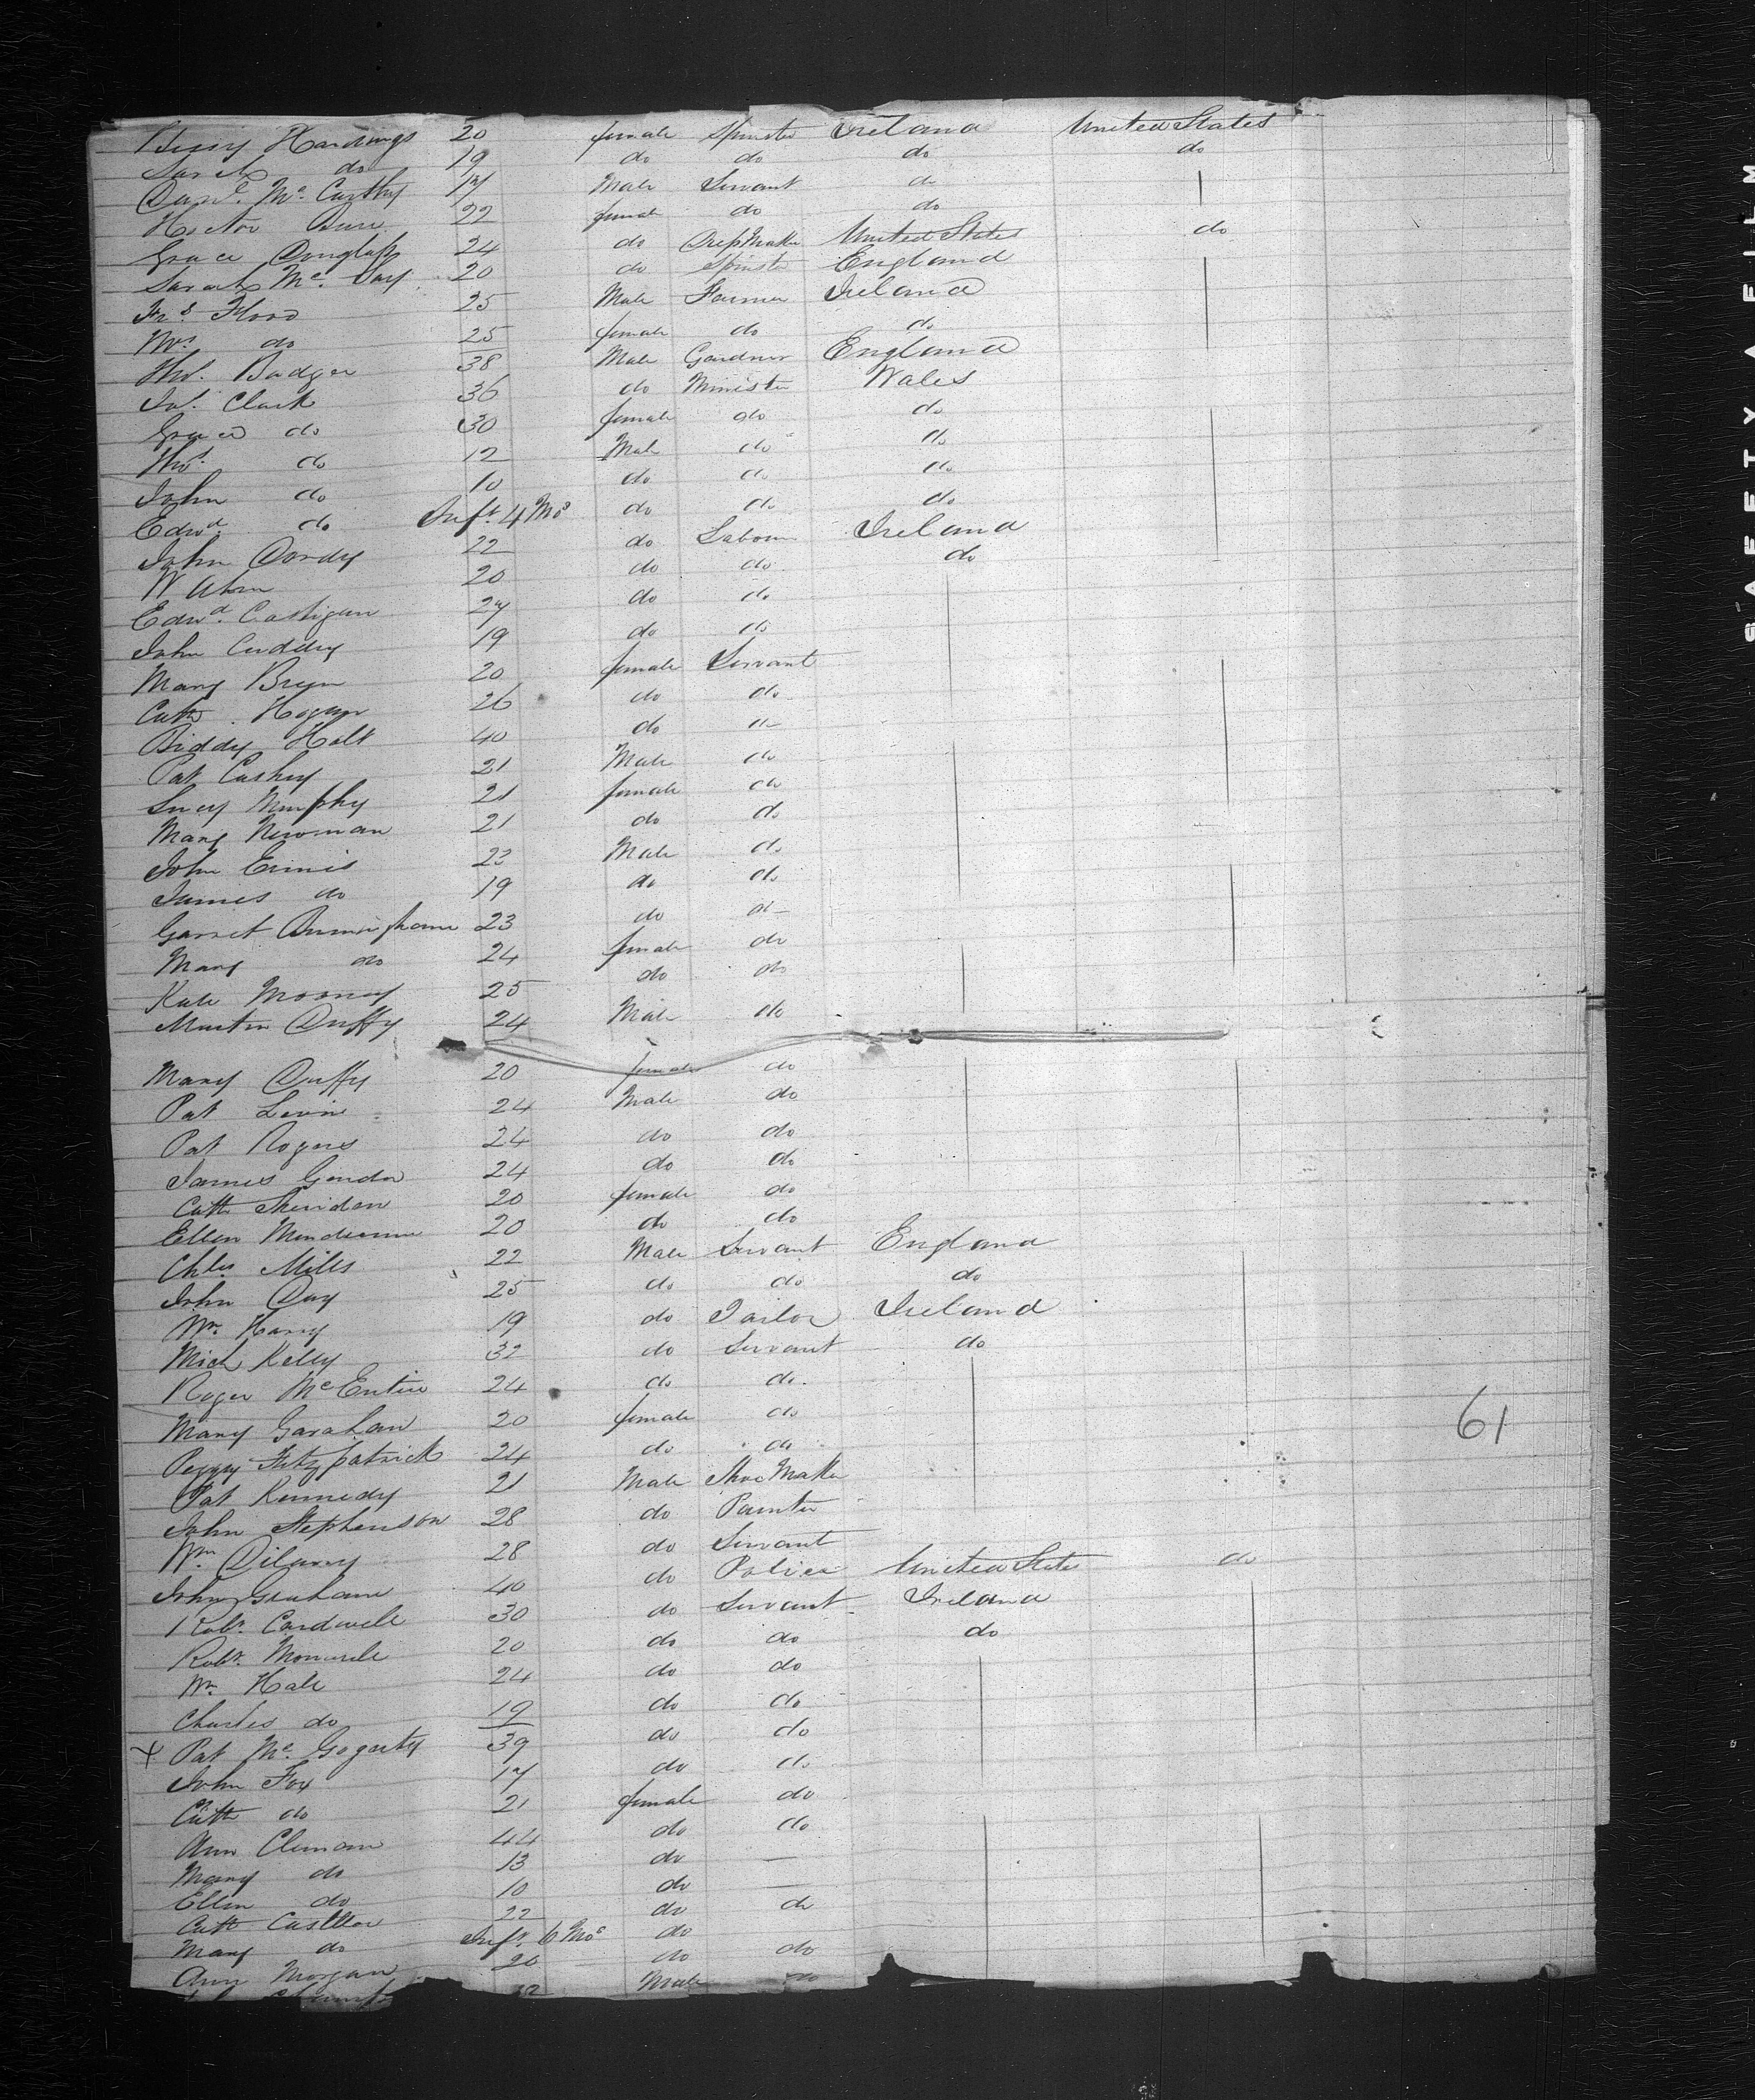 Hardings 20 female Spinster Ireland United States
Sarah do 19 do do do do
Danl. Mc. Carthy 17 Male Servant do
22 female do do
Grace Douglass 24 do DressMaker United States do
Sarah Mc. 20 do Spinster England
Frs. Flood 25 Male Farmer Ireland
Mrs. do 25 female do do
Thos. Badger 38 Male Gardner England
Jas. Clark 36 do Minister Wales
Grace do 30 female do do
Thos. do 12 Male do do
John do 10 do do do
Edwd. do Inft. 4 Mos do do do
John 22 do Labour Ireland
W 20 do do do
Edwd. Castigan 27 do do
John Cuddy 19 do do
Mary 20 female Servant
Cath. Hogan 26 do do
Biddy Holt 40 do do
Pat Cashey 21 Male do
Lucy Murphy 21 female do
Mary Newman 21 do do
John Ennis 23 Male do
James do 19 do do
Garret 23 do do
Mary do 24 female do
Kate Mooney 25 do do
Martin Duffy 24 Male do
Mary Duffy 20 female do
Pat Levin 24 Male do
Pat Rogers 24 do do
James 24 do do
Cath Sheridan 20 female do
Ellen 20 do do
Chls. Mills 22 Male Servant England
John Day 25 do do do
Wm. Harry 19 do Tailor Ireland
Mich Kelly 32 do Servant do
Roger McEntire 24 do do
Mary Garahan 20 female do
Peggy Fitzpatrick 24 do do
Pat Kennedy 21 Male Shoe Maker
61
John Stephenson 28 do Painter
Wm. Dilaney 28 do Servant
John Graham 40 do Police United States do
Robt. Cardwell 30 do Servant Ireland
Robt. 20 do do do
Wm. Hale 24 do do
Charles do 19 do do
x Pat Mc. Gogarty 39 do do
John Fox 17 do do
Cath do 21 female do
Ann 44 do do
Mary do 13 do —
Ellen do 10 do —
Cath 22 do do
Mary do Inft. 6 Mos do
Ann Morgan 20 do do
Male do
SAFETY FILM